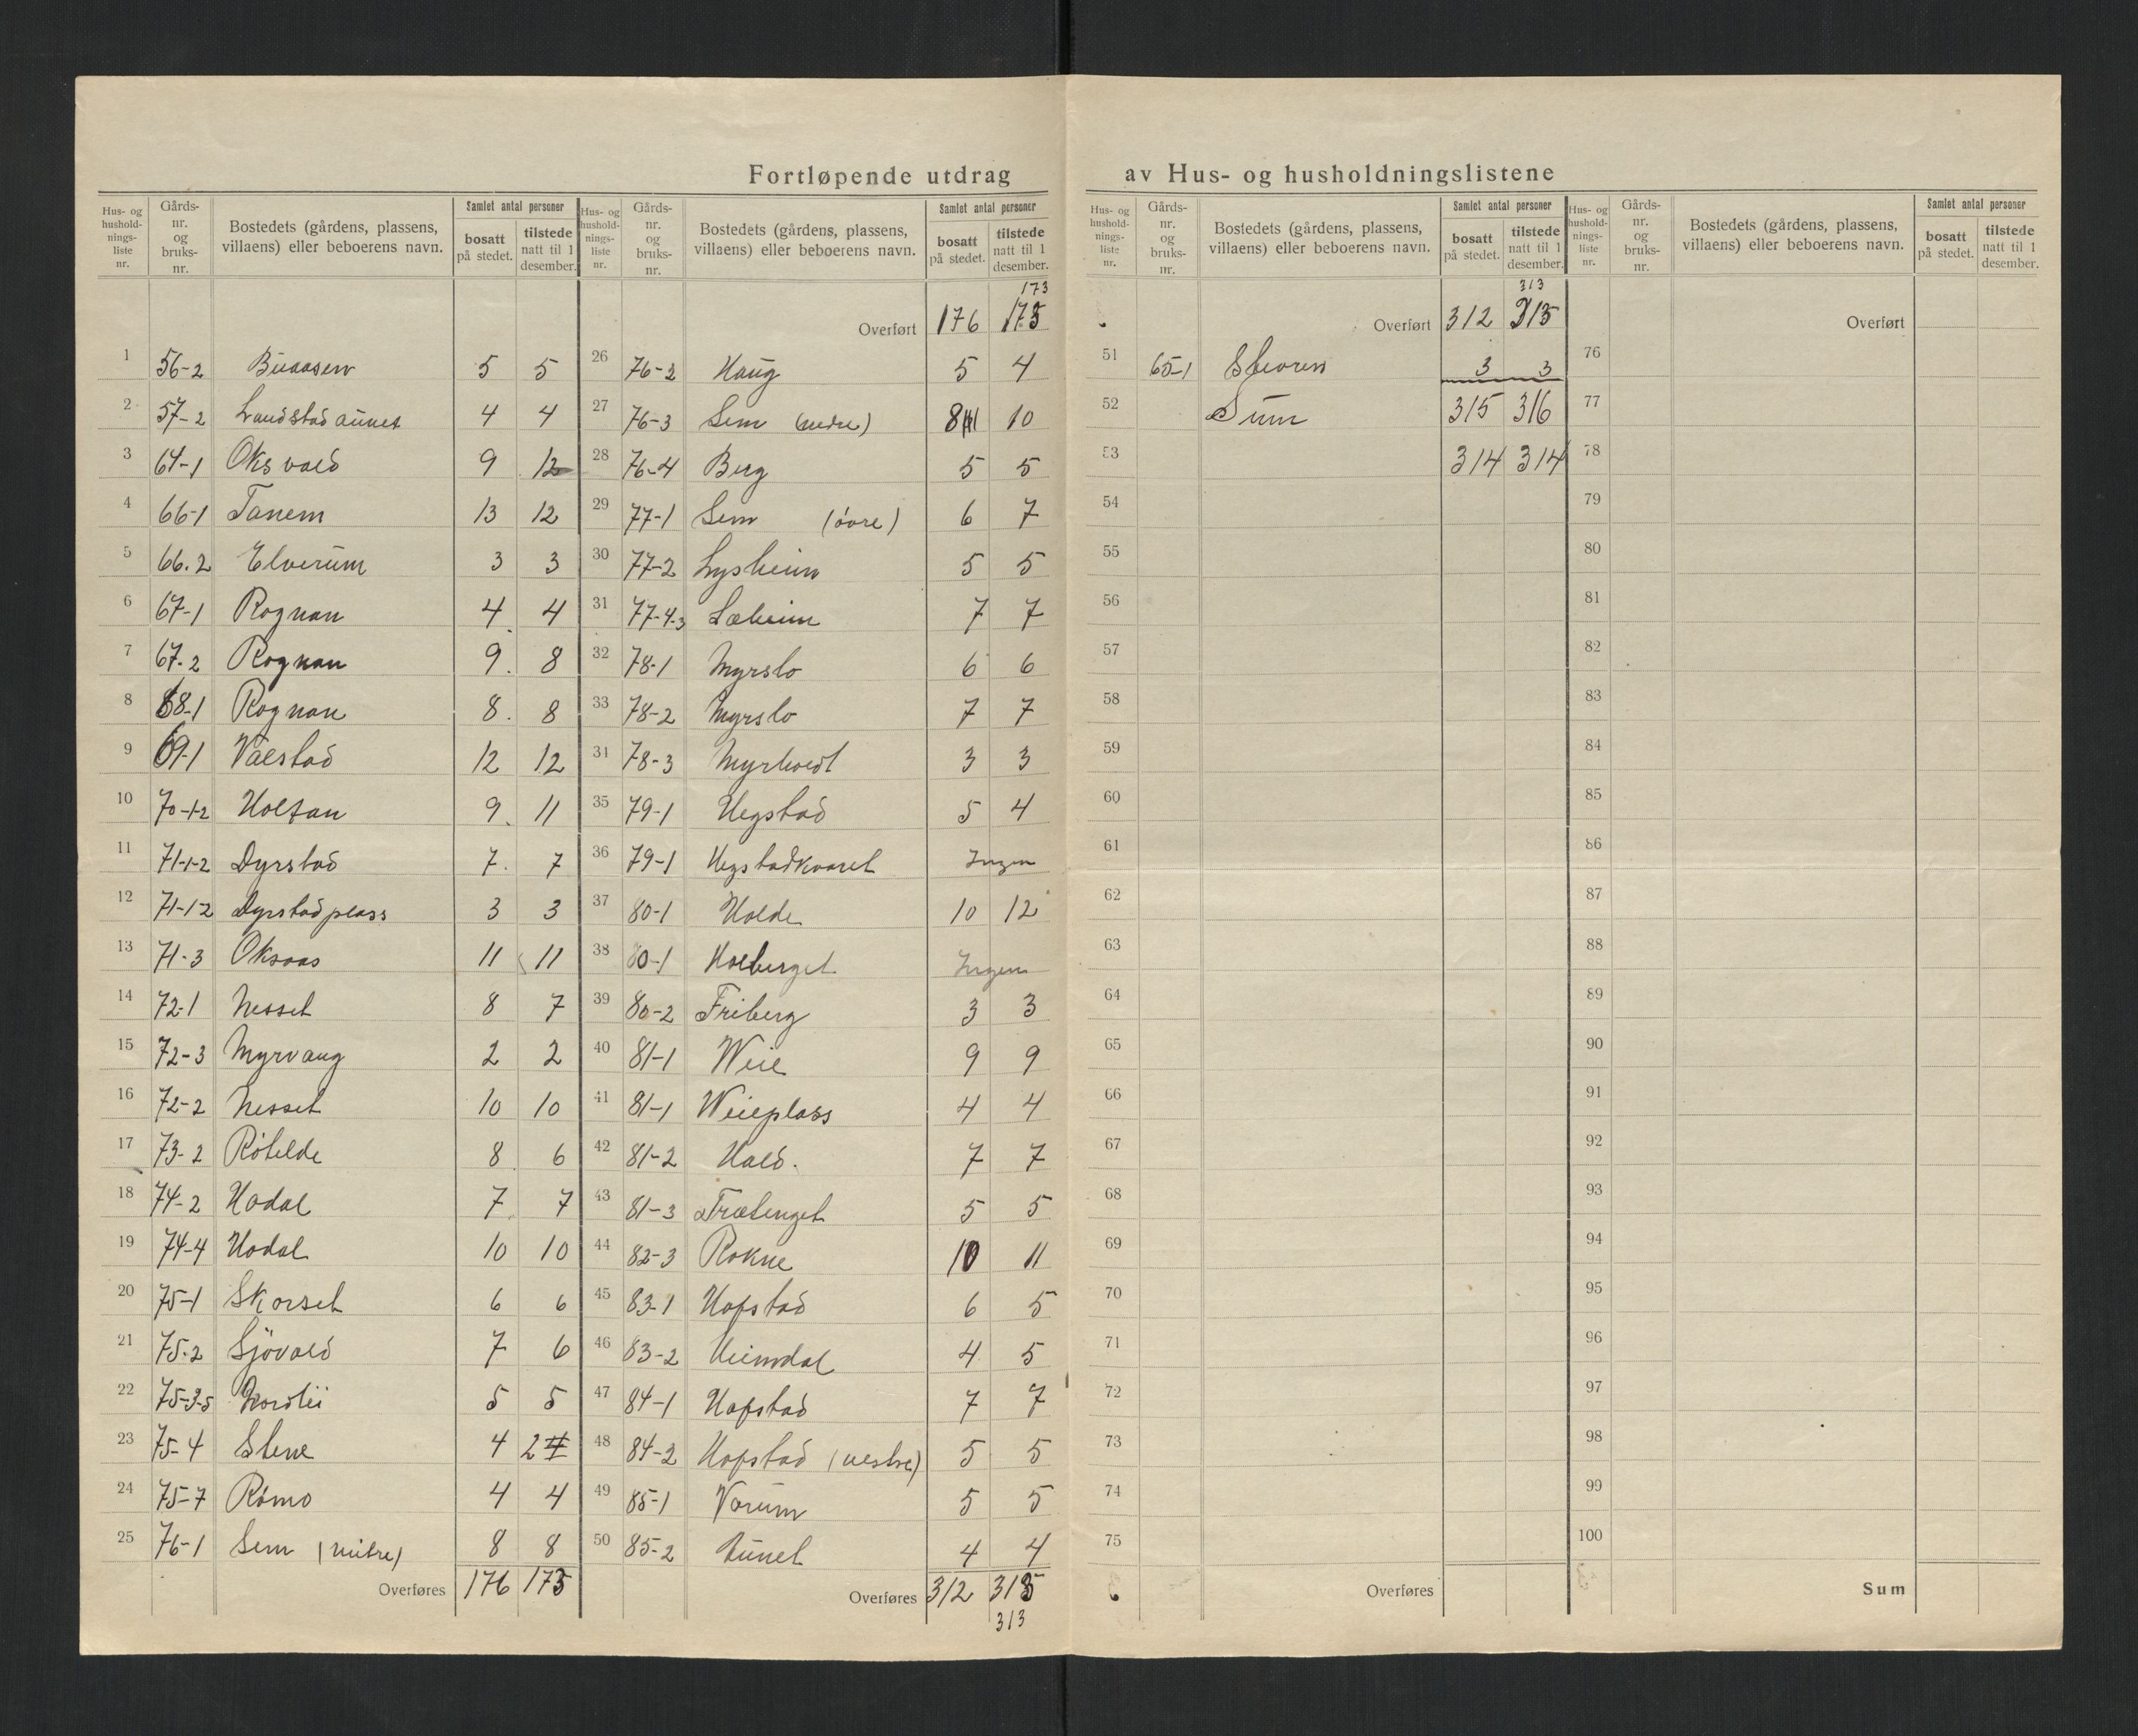 Fortløpende utdrag av Hus- og husholdningslistene
Hus- og hushold- nings- liste nr. Gårds- nr. og bruks- nr. Bostedets (gårdens, plassens, villaens) eller beboerens navn. Samlet antal personer bosatt på stedet. tilstede natt til 1 desember.
1 56-2 Buaasen 5 5
2 57-2 Landstadaunet 4 4
3 64-1 Oksvold 9 12
4 66-1 Tanem 13 12
5 66.2 Elverum 3 3
6 67-1 Rognan 4 4
7 67-2 Rognan 9 8
8 68-1 Rognan 8 8
9 69-1 Valstad 12 12
10 70-1-2 Holtan 9 11
11 71-1-2 Dyrstad 7 7
12 71-1-2 Dyrstadplass 3 3
13 71-3 Oksaas 11 11
14 72-1 Nesset 8 7
15 72-3 Myrvang 2 2
16 72-2 Nesset 10 10
17 73-2 Rötelde 8 6
18 74-2 Hodal 7 7
19 74-4 Hodal 10 10
20 75-1 Skorset 6 6
21 75-2 Sjövold 7 6
22 75-3-5 Nordlii 5 5
23 75-4 Stene 4 2
24 75-7 Römo 4 4
25 76-1 Sem (mitre) 8 8
Overføres 176 173
Hus- og hushold- nings- liste nr. Gårds- nr. og bruks- nr. Bostedets (gårdens, plassens, villaens) eller beboerens navn. Samlet antal personer bosatt på stedet. tilstede natt til 1 desember.
173
Overført 176 173
26 76-2 Haug 5 4
27 76-3 Sem (nedre) 8 10
28 76-4 Berg 5 5
29 77-1 Sem (övre) 6 7
30 77-2 Lysheim 5 5
31 77-4-3 Læheim 7 7
32 78-1 Myrslo 6 6
33 78-2 Myrslo 7 7
34 78-3 Myrholdt 3 3
35 79-1 Hegstad 5 4
36 79-1 Hegstadkvaret Ingen
37 80-1 Holde 10 12
38 80-1 Holberget Ingen
39 80-2 Friberg 3 3
40 81-1 Weie 9 9
41 81-1 Weieplass 4 4
42 81-2 Hald. 7 7
43 81-3 Trætenget 5 5
44 82-3 Rokne 10 11
45 83-1 Hofstad 6 5
46 83-2 Heimdal 4 5
47 84-1 Hofstad 7 7
48 84-2 Hofstad (vestre) 5 5
49 85-1 Vorum 5 5
50 85-2 Aunet 4 4
Overføres 312 313
313
Hus- og hushold- nings- liste nr. Gårds- nr. og bruks- nr. Bostedets (gårdens, plassens, villaens) eller beboerens navn. Samlet antal personer bosatt på stedet. tilstede natt til 1 desember.
313
Overført 312 315
51 65-1 Storen 3 3
52 Sum 315 316
53 314 314
54
55
56
57
58
59
60
61
62
63
64
65
66
67
68
69
70
71
72
73
74
75
Overføres
Hus- og hushold- nings- liste nr. Gårds- nr. og bruks- nr. Bostedets (gårdens, plassens, villaens) eller beboerens navn. Samlet antal personer bosatt på stedet. tilstede natt til 1 desember.
Overført
76
77
78
79
80
81
82
83
84
85
86
87
88
89
90
91
92
93
94
95
96
97
98
99
100
Sum